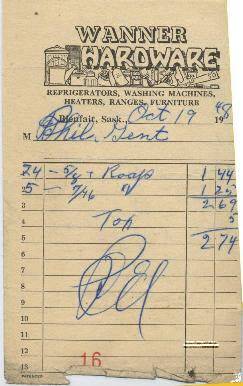 WANNER
HARDWARE
REFRIGERATORS, WASHING MACHINES,
HEATERS, RANGES, FURNITURE
Bienfait, Sask., Oct 19 1948
M Phil Gent
1
24 - 5/8 + Roaps 1 44
2 5 - 7/16 " 1 25
3 2 69
4 Tax 5
5 2 74
6
7
8
9
10
11
12
13 16
PATENTED